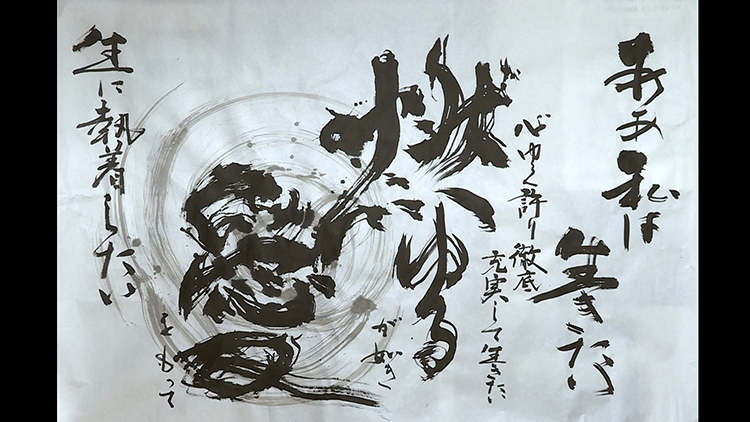 ああ私は
生きたい
心ゆく許り徹底
充実して生きたい
燃ゆる
が如き
愛
をもって
生に執着したい